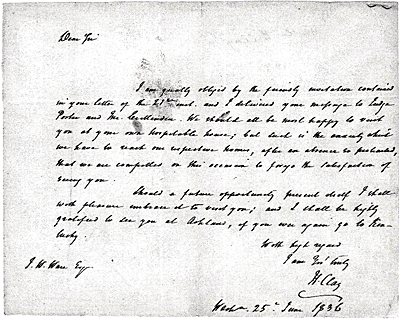 Dear Sir
I am greatly obliged by the friendly invitation contained
in your letter of the 21st inst. and I delivered your message to Judge
Porter and Mr. Crittenden. We should all be most happy to visit
you at your own hospitable house; but such is the anxiety which
we have to reach our respective homes, after an absence so protracted,
that we are compelled on this occasion to forego the satisfaction of
seeing you.
Should a future opportunity present itself I shall
with pleasure embrace it to visit you; and I shall be highly
gratified to see you at Ashland, if you ever again go to Ken-
tucky.
With high regard
I am Yrs truly
H. Clay
J. W. Ware Esq
Washn. 25th June 1836